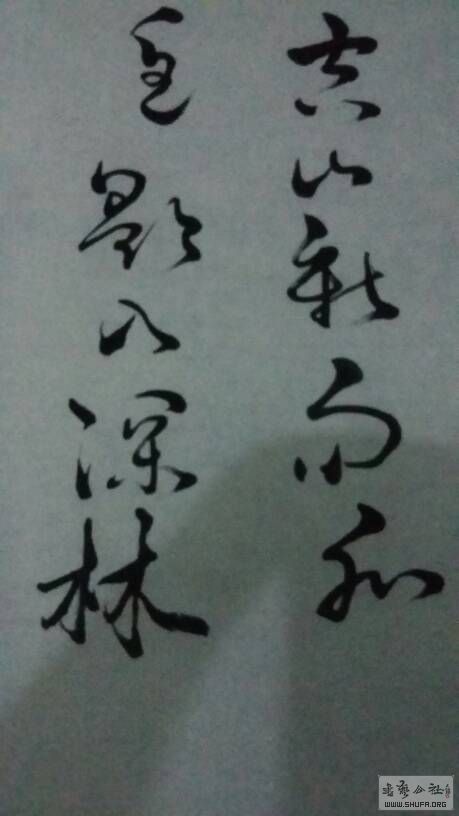 空山新雨
影入深林
书艺公社
WWW.SHUFA.ORG